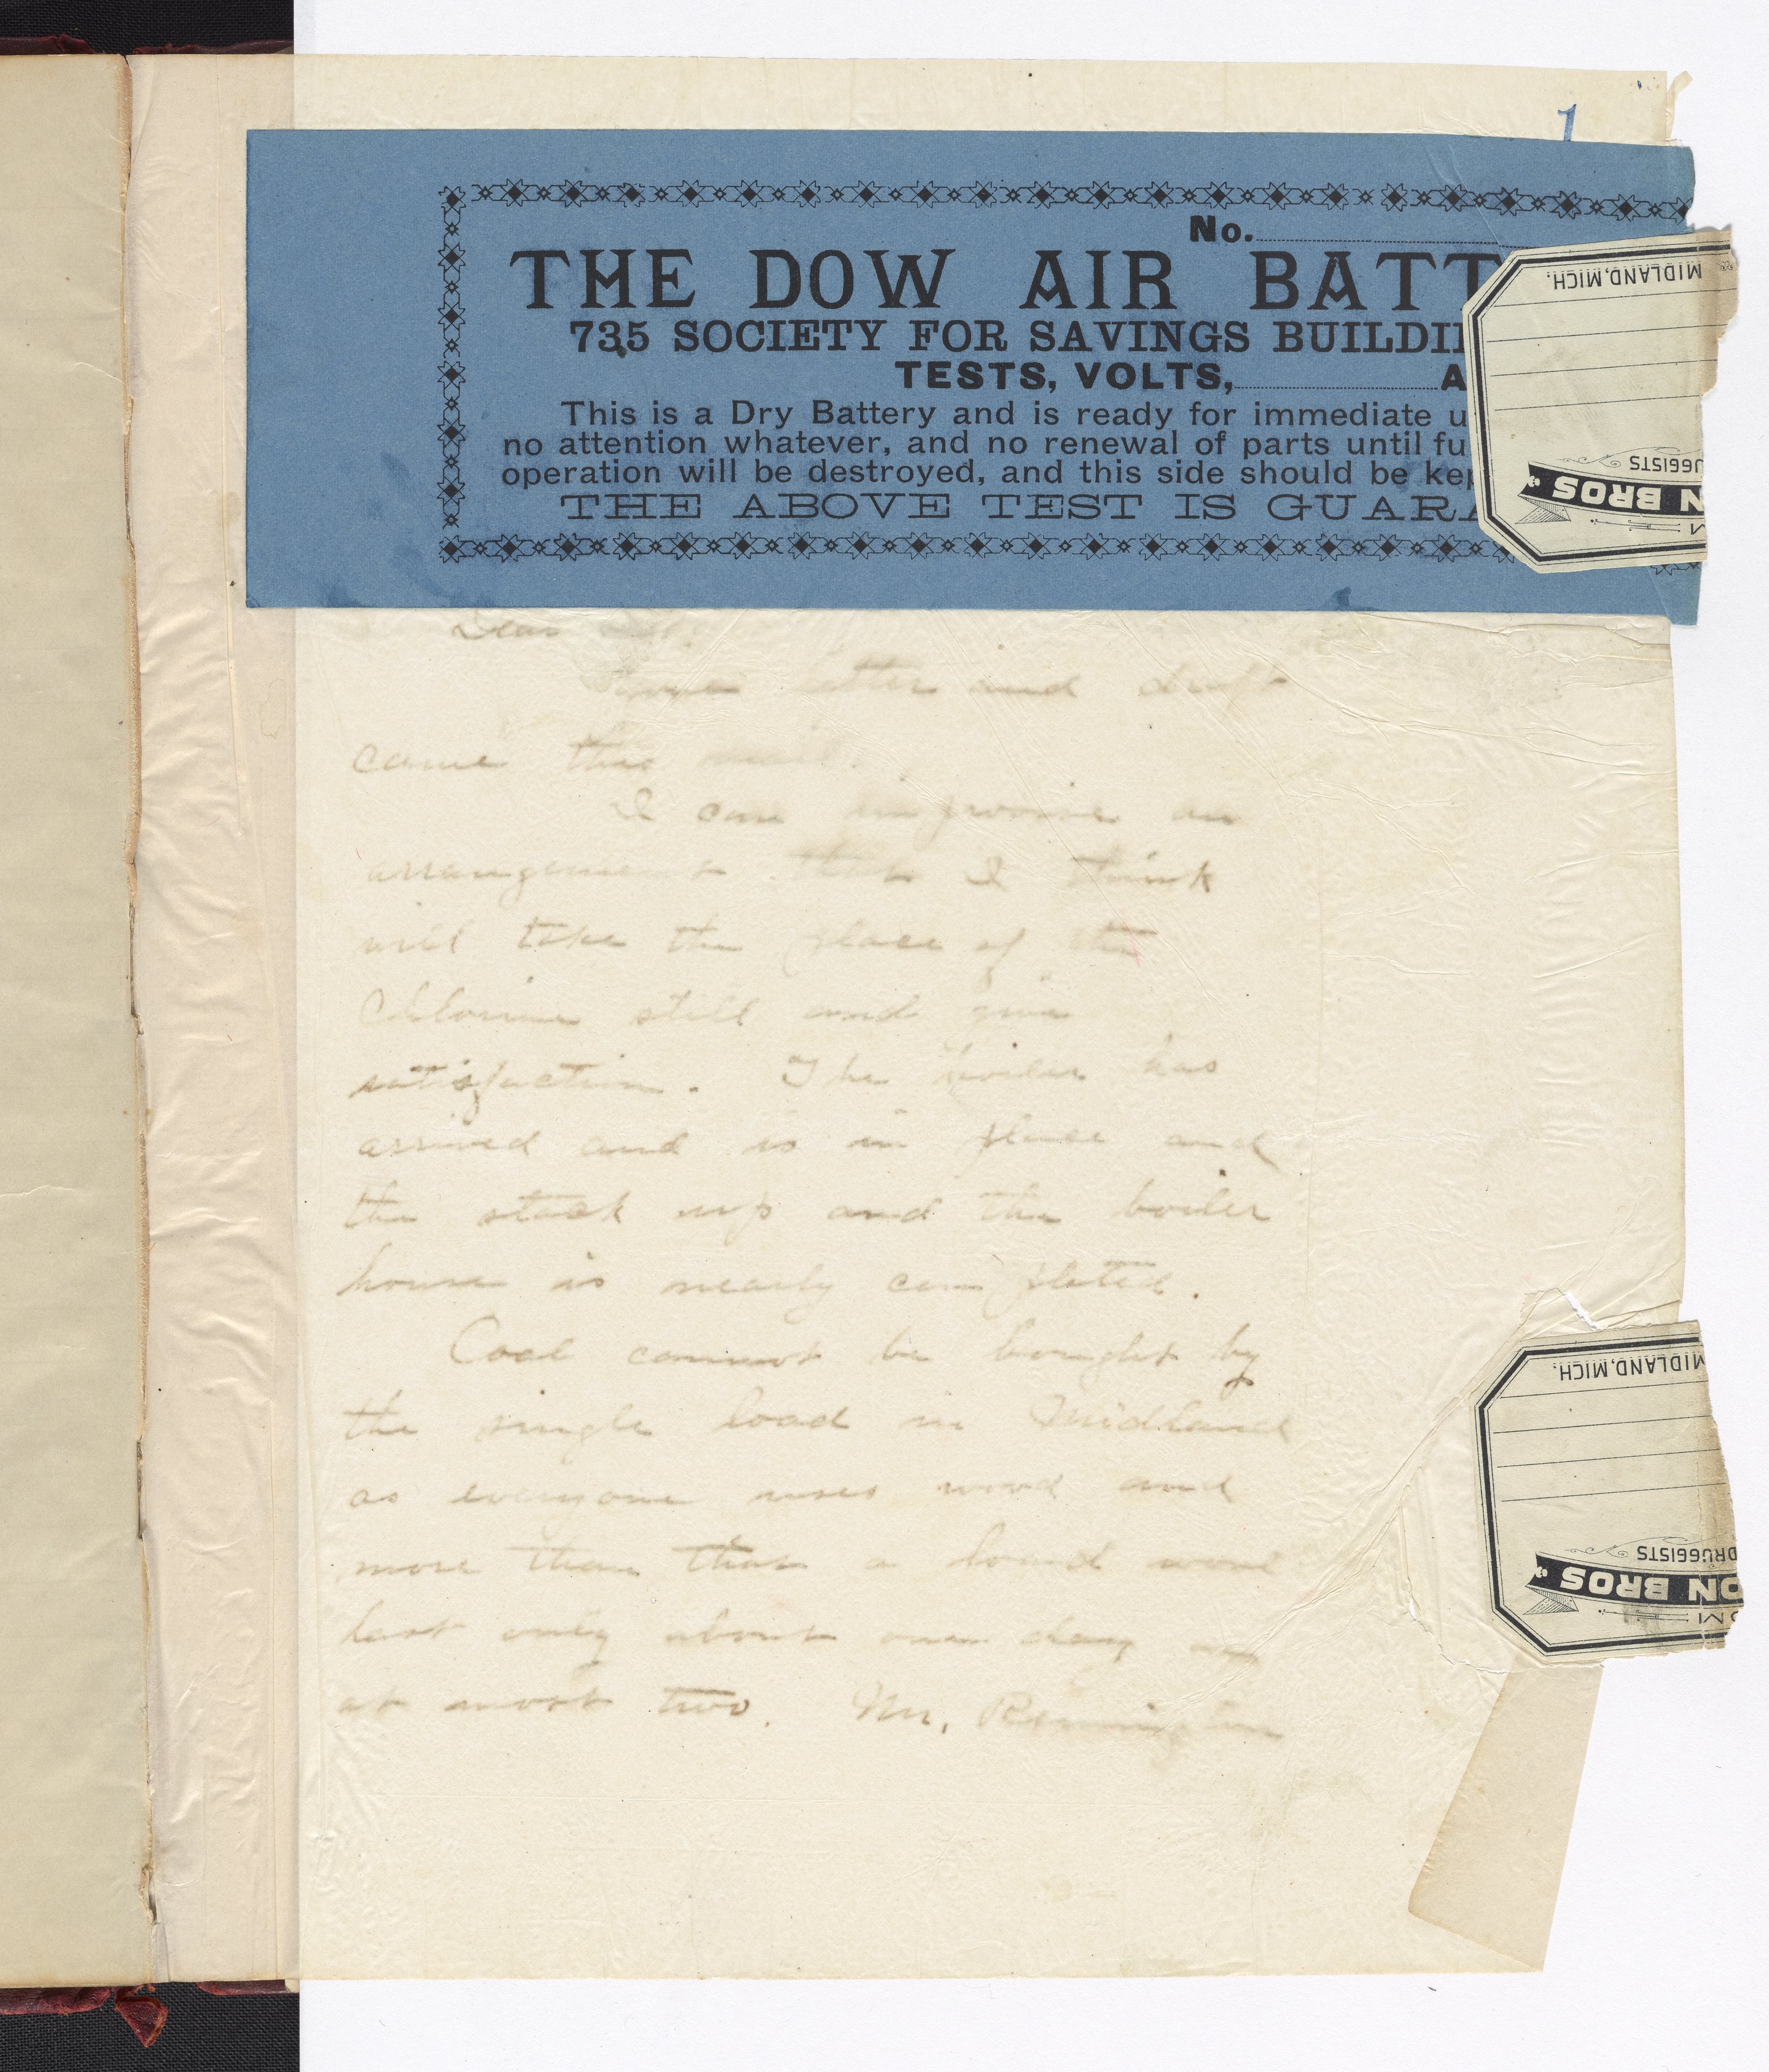 1
No.
THE DOW AIR BATT
735 SOCIETY FOR SAVINGS BUILDI
TESTS, VOLTS, A
This is a Dry Battery and is ready for immediate u
no attention whatever, and no renewal of parts until fu
operation will be destroyed, and this side should be kep
THE ABOVE TEST IS GUARA
MIDLAND, MICH.
UGGISTS
N BROS
Dear
Your letter and draft
came this mail.
I can improvise an
arrangement that I think
will take the place of the
Chlorine still and give
satisfaction. The boiler has
arrived and is in place and
the stack up and the boiler
house is nearly completed.
Coal cannot be bought by
the single load in Midland
as everyone uses wood and
more than that a load would
last only about one day or
at most two. Mr. Remington
MIDLAND, MICH.
DRUGGISTS
ON BROS